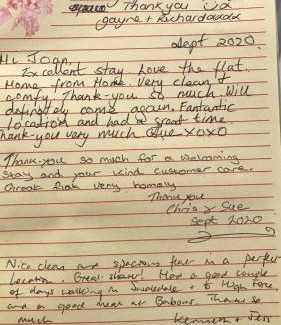 Thank you
Gayne + Richard xxxxx
Sept 2020.
Hi Joan,
Excellent stay. Love the flat.
Home from Home. Very clean &
comfy. Thank-you so much. Will
definitely come again. Fantastic
location and had a great time.
Thank-you very much Sue xoxo
Thank-you so much for a welcoming
stay and your kind customer care.
Great flat very homely
Thank you
Chris & Sue
Sept 2020
Nice clean and spacious flat in a perfect
location. Great shower! Had a good couple
of days walking in Swaledale + to High Force
and a good meal at Barbours. Thanks so
much Kenneth + Jess